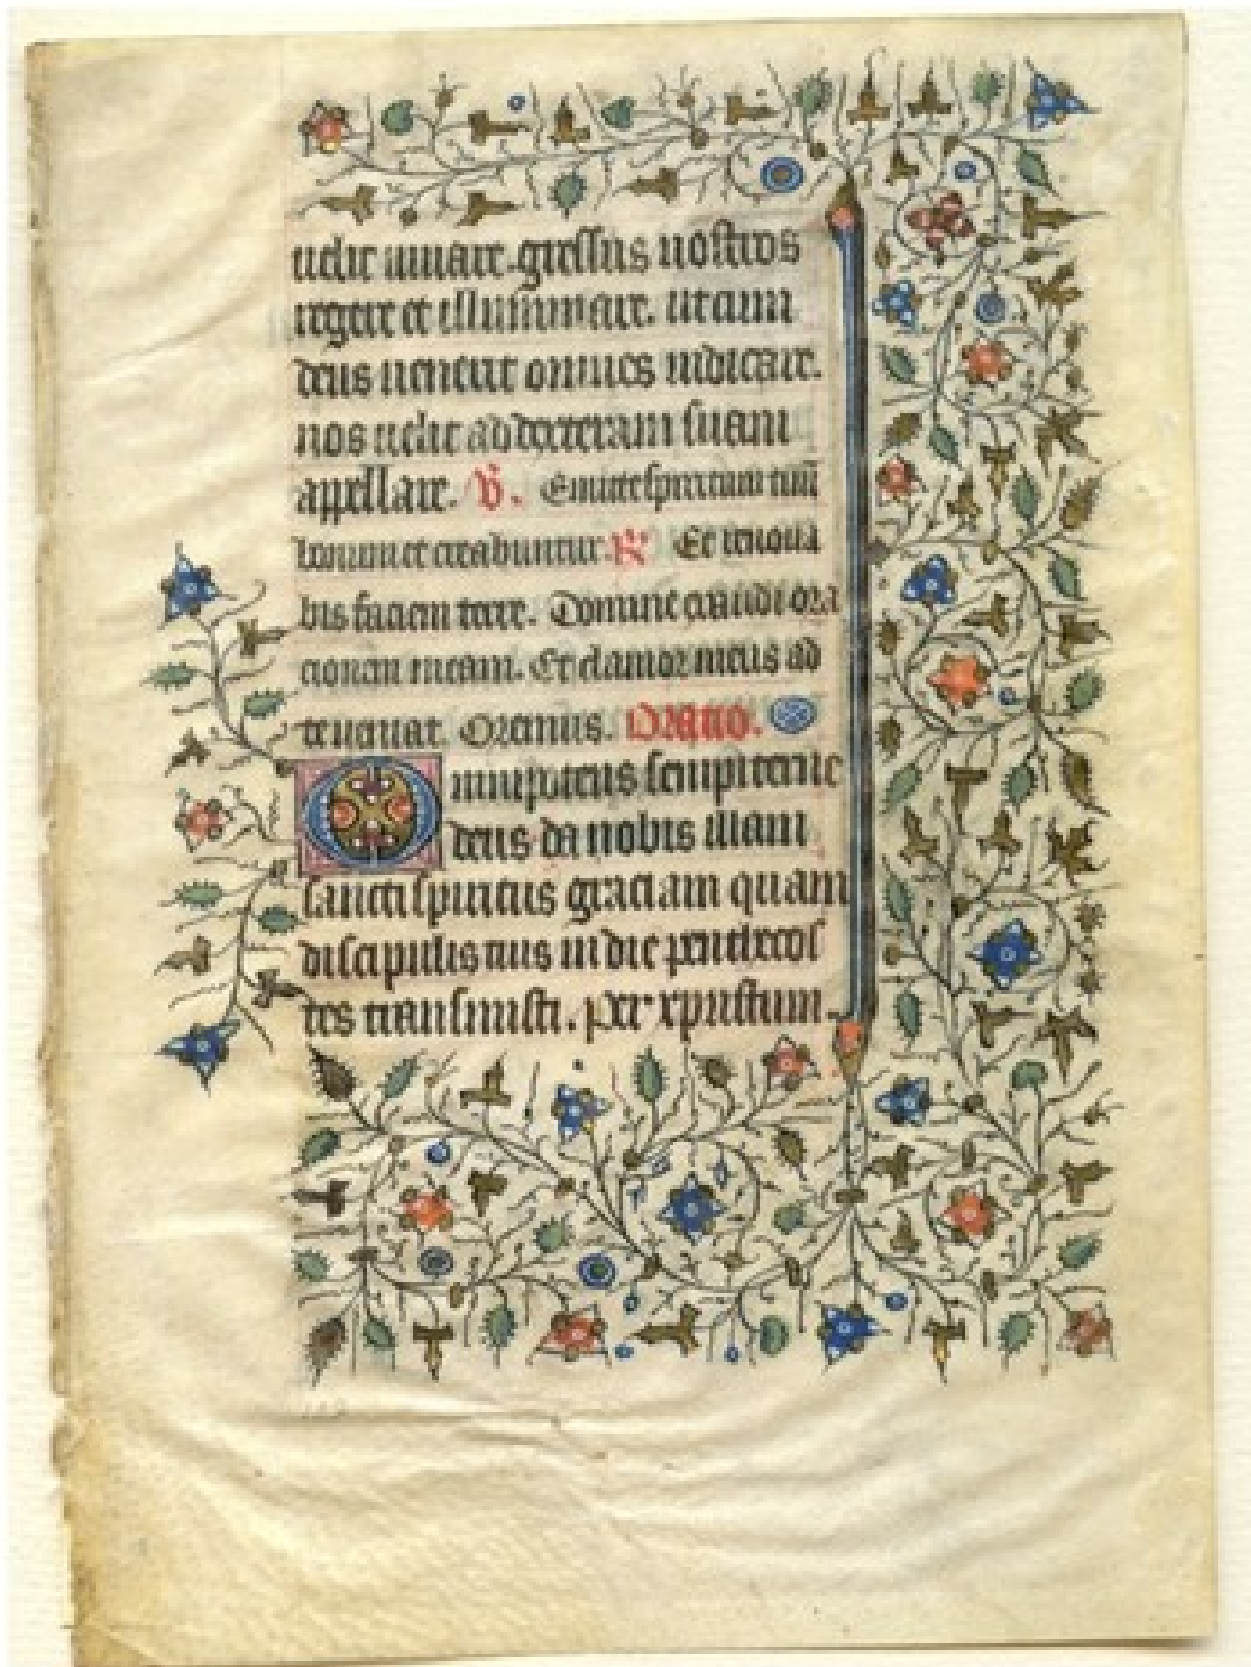 uelit iuuare. gressus nostros
regere et illuminare. ut cum
deus uenerit omnes iudicare.
nos uelit ad dexteram suam
apellare. V. Emitte spiritum tuū
bonum et creabuntur. R Et renoua
bis faciem terre. Domine exaudi ora
cionem meam. Et clamor meus ad
te ueniat. Oremus. Oratio.
Omnipotens sempiterne
deus da nobis illam
sancti spiritus graciam quam
discipulis tuis in die penthecos
tes transmisti. per xpristum.